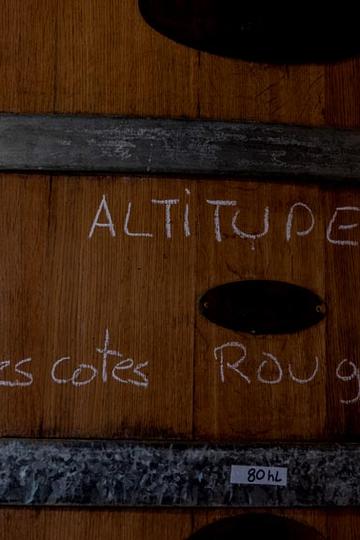 ALTITUDE
es cotes Roug
80hL